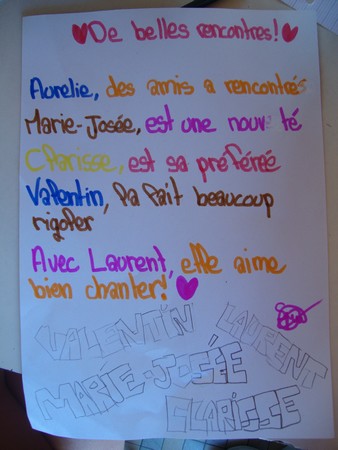 De belles rencontres!
Aurelie, des amis a rencontrés
Marie-Josée, est une nouv té
Clarisse, est sa préférée
Valentin, la fait beaucoup
rigoler,
Avec Laurent, elle aime
bien chanter!
VALENTIN
LAURENT
MARIE-JOSÉE
CLARISSE